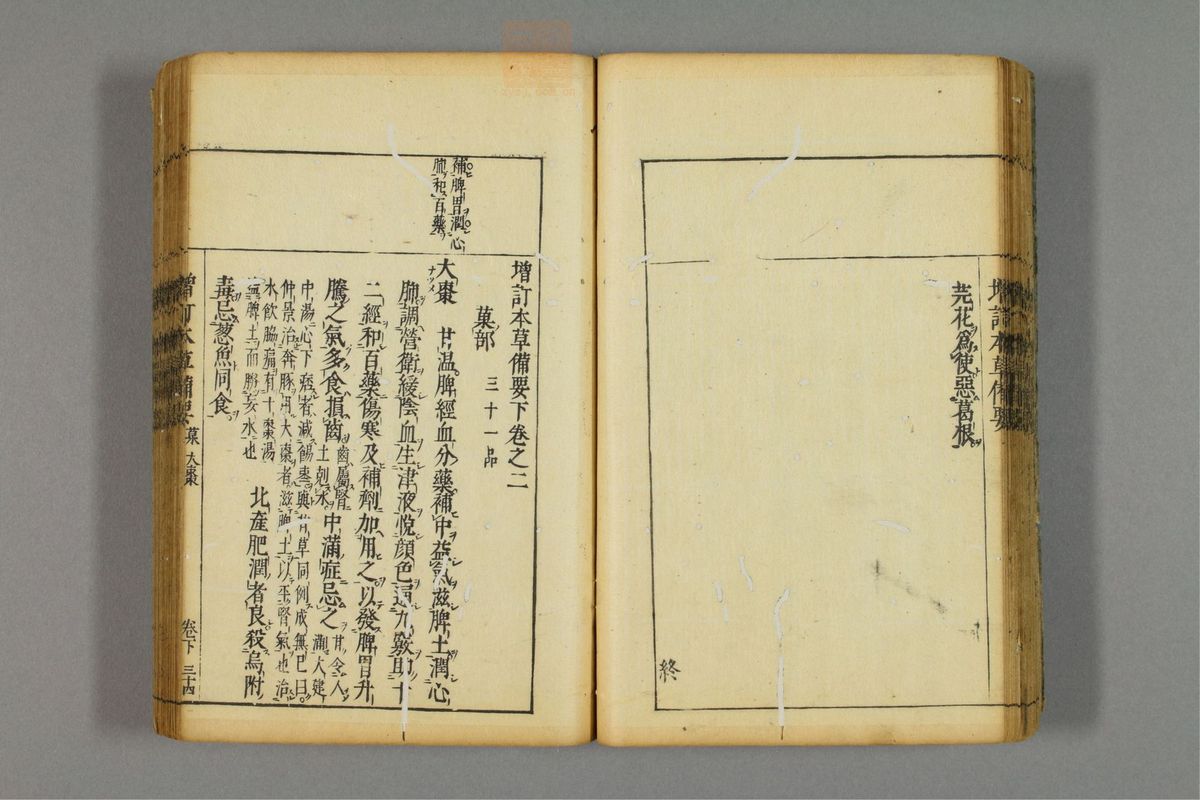 增訂本草備要
芫花為使惡葛根
終
補脾胃潤心
肺和百藥
增訂本草備要下卷之二
菓部
三十一品
大棗 甘温脾經血分藥補中益氣滋脾土潤心
ナツメ
肺調營衛緩陰血生津液悅顏色通九竅助十
二經和百藥傷寒及補劑加用之以發脾胃升
騰之氣多食損齒
齒屬腎
土剋水
中滿症忌之
甘令人
滿大建
中湯心下痞者減餳棗與甘草同例成無已曰
仲景治奔豚用大棗者滋脾土以平腎氣也治
水飲脇痛有十棗湯
益脾土而勝妄水也
北產肥潤者良殺烏附
毒忌葱魚同食
增訂本草備要
菓 大棗
卷下 三十四